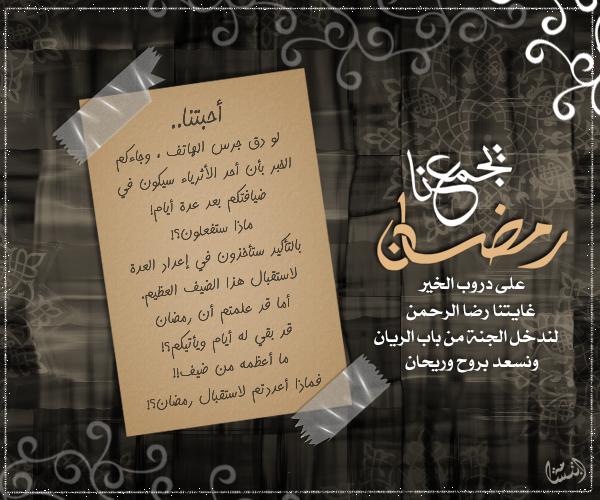 تجمعنا
رمضان
على دروب الخير
غايتنا رضا الرحمن
لندخل الجنة من باب الريان
ونسعد بروح وريحان
أحبتنا..
لو دق جرس الهاتف ، وجاءكم
الخبر بأن أحد الأثرياء سيكون في
ضيافتكم بعد عدة أيام!
ماذا ستفعلون؟!
بالتأكيد ستأخذون في إعداد العدة
لاستقبال هذا الضيف العظيم.
أما قد علمتم أن رمضان
قد بقي له أيام ويأتيكم؟!
ما أعظمه من ضيف!!
فماذا أعددتم لاستقبال رمضان؟!